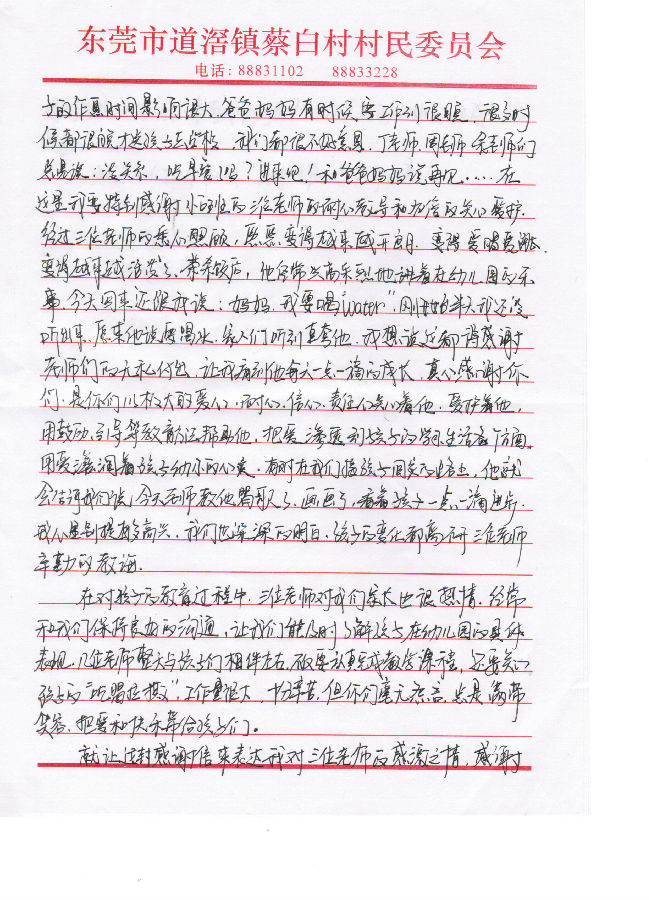 东莞市道滘镇蔡白村村民委员会
电话:88831102 88833228
子的作息时间影响很大,爸爸妈妈有时候要工作到很晚,很多时
候都很晚才送孩子去学校,我们都很不好意思,丁老师、周老师、余老师们
总是说:没关系,吃早餐了吗?进来吧!和爸爸妈妈说再见……在
这里我要特别感谢小班的三位老师的耐心教导和为信的关心、爱护。
经过三位老师的悉心照顾,熙熙变得越来越开朗,变得爱唱爱跳、
变得越来越活泼了。常常饭后,他会常兴高采烈地讲着在幼儿园的乐
事,今天回来还跟我说:妈妈,我要喝“water”,刚开始半天我还没
听出来,原来他说要喝水,家人们听到直夸他,我想说这都得感谢
老师们的无私付出,让我看到他每天一点一滴的成长,真心感谢你
们,是你们以极大的爱心、耐心、信心、责任心关心着他,爱护着他,
用鼓励、引导等教育方法帮助他,把爱渗透到孩子的学习生活各个方面,
用爱滋润着孩子幼小的心灵,有时在我们接孩子回家的路上,他就
会告诉我们说,今天老师教他唱歌了、画画了,看着孩子一点一滴进步,
我心里别提有多高兴,我们也深深的明白,孩子的变化都离不开三位老师
辛勤的教诲。
在对孩子的教育过程中,三位老师对我们家长也很热情,经常
和我们保持良好的沟通,让我们能及时了解孩子在幼儿园的具体
表现,几位老师整天与孩子们相伴左右,不仅要认真完成教学课程,还要关心
孩子的“吃喝拉撒”,工作量很大,十分辛苦,但你们毫无怨言,总是满带
笑容,把爱和快乐带给孩子们。
就让这封感谢信来表达我对三位老师的感激之情,感谢